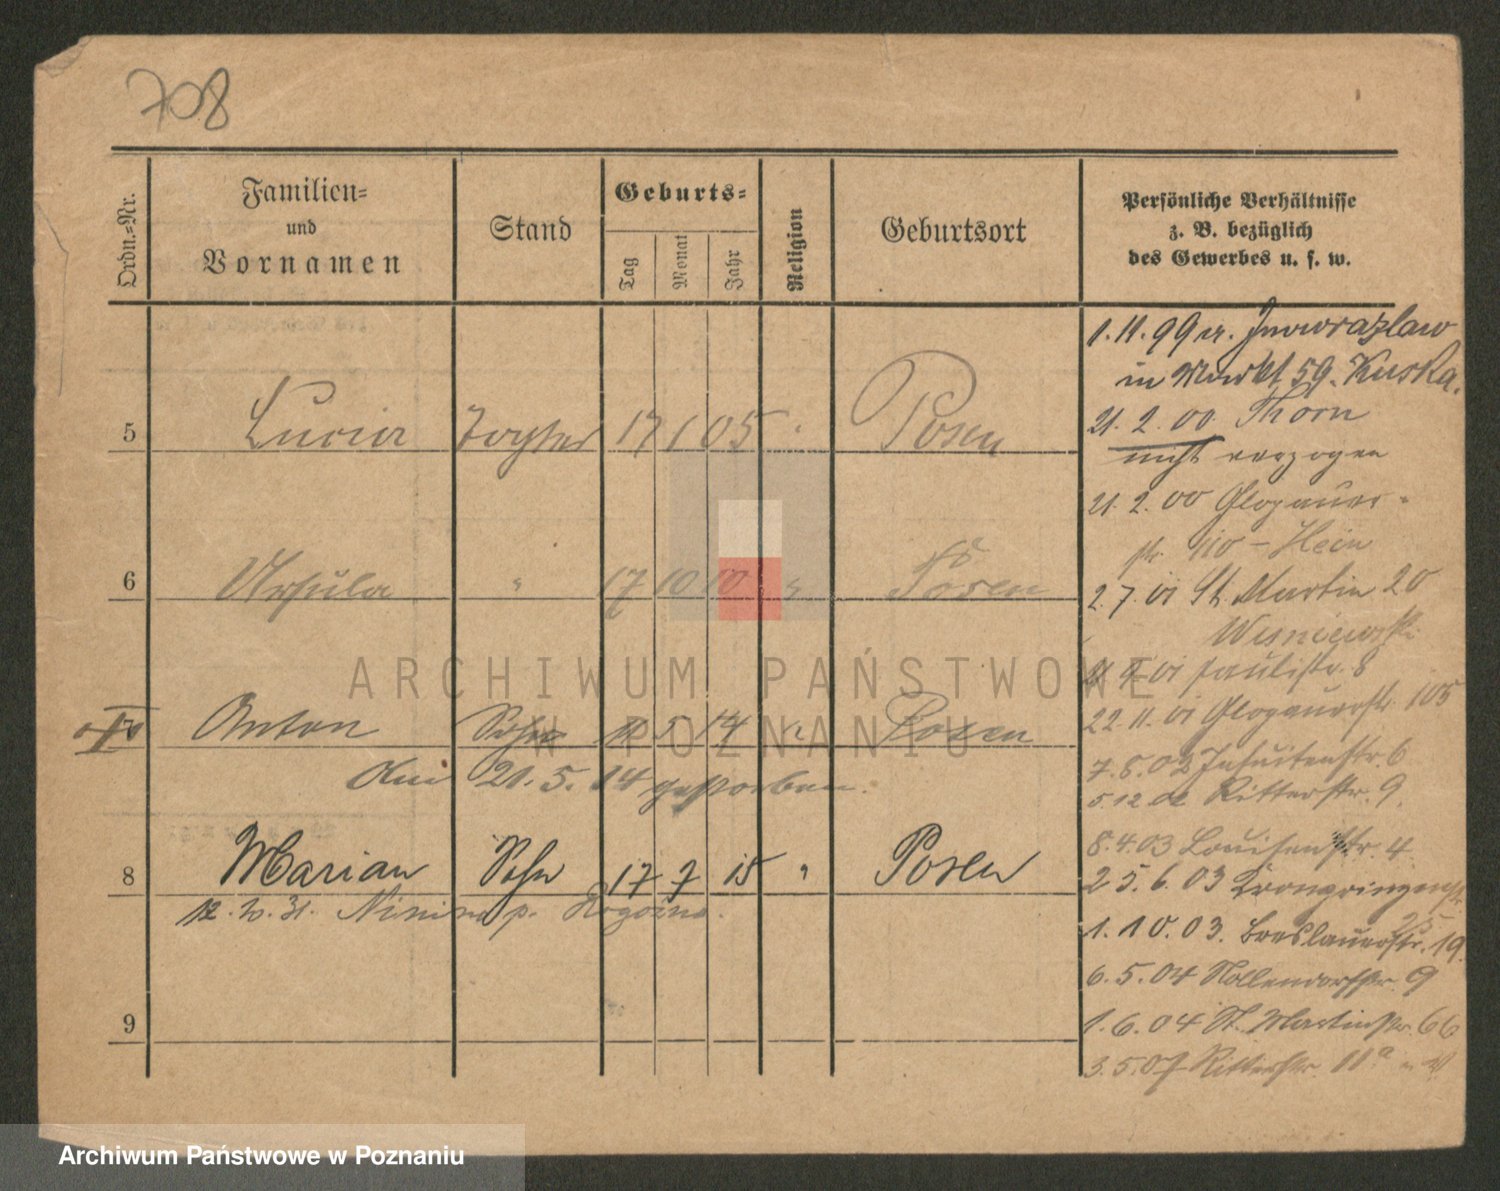 708
Ordn.=Nr.
Familien=
und
Vornamen
Stand
Geburts=
Tag
Monat
Jahr
Religion
Geburtsort
Persönliche Verhältnisse
z. B. bezüglich
des Gewerbes u. s. w.
5 Lucia Tochter 17 1 05 " Posen
6 Ursula " 17 10 10 " Posen
7 Anton Sohn 5 14 " Posen
Am 21. 5. 14 gestorben.
8 Marian Sohn 17 7 15 " Posen
12. 31. p. Rogoźno.
9
1. 11. 99 n. Inowrazlaw
in Markt 59. Kuska.
21. 2. 00. Thorn
nicht verzogen
21. 2. 00 Glogauer-
str. 110 - Hein
2. 7. 01 St. Martin 20
Wisniewski
01 Paulistr. 8
22. 11. 01 Glogauerstr. 105
7. 5. 02 Jesuitenstr. 6
5. 12 02 Ritterstr. 9.
8. 4. 03 Louisenstr. 4
25. 6. 03 Kronprinzenstr.
1. 10. 03. Breslauerstr. 19.
6. 5. 04 Nollendorfstr. 9
1. 6. 04 St. Martinstr. 66
3. 5. 07 Ritterstr. 11a
ARCHIWUM PAŃSTWOWE
W POZNANIU
Archiwum Państwowe w Poznaniu